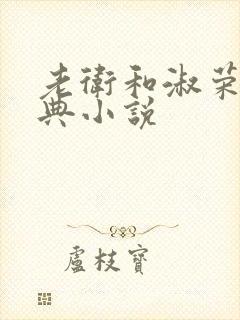 老衛和淑荣
典小说
盧枝寶